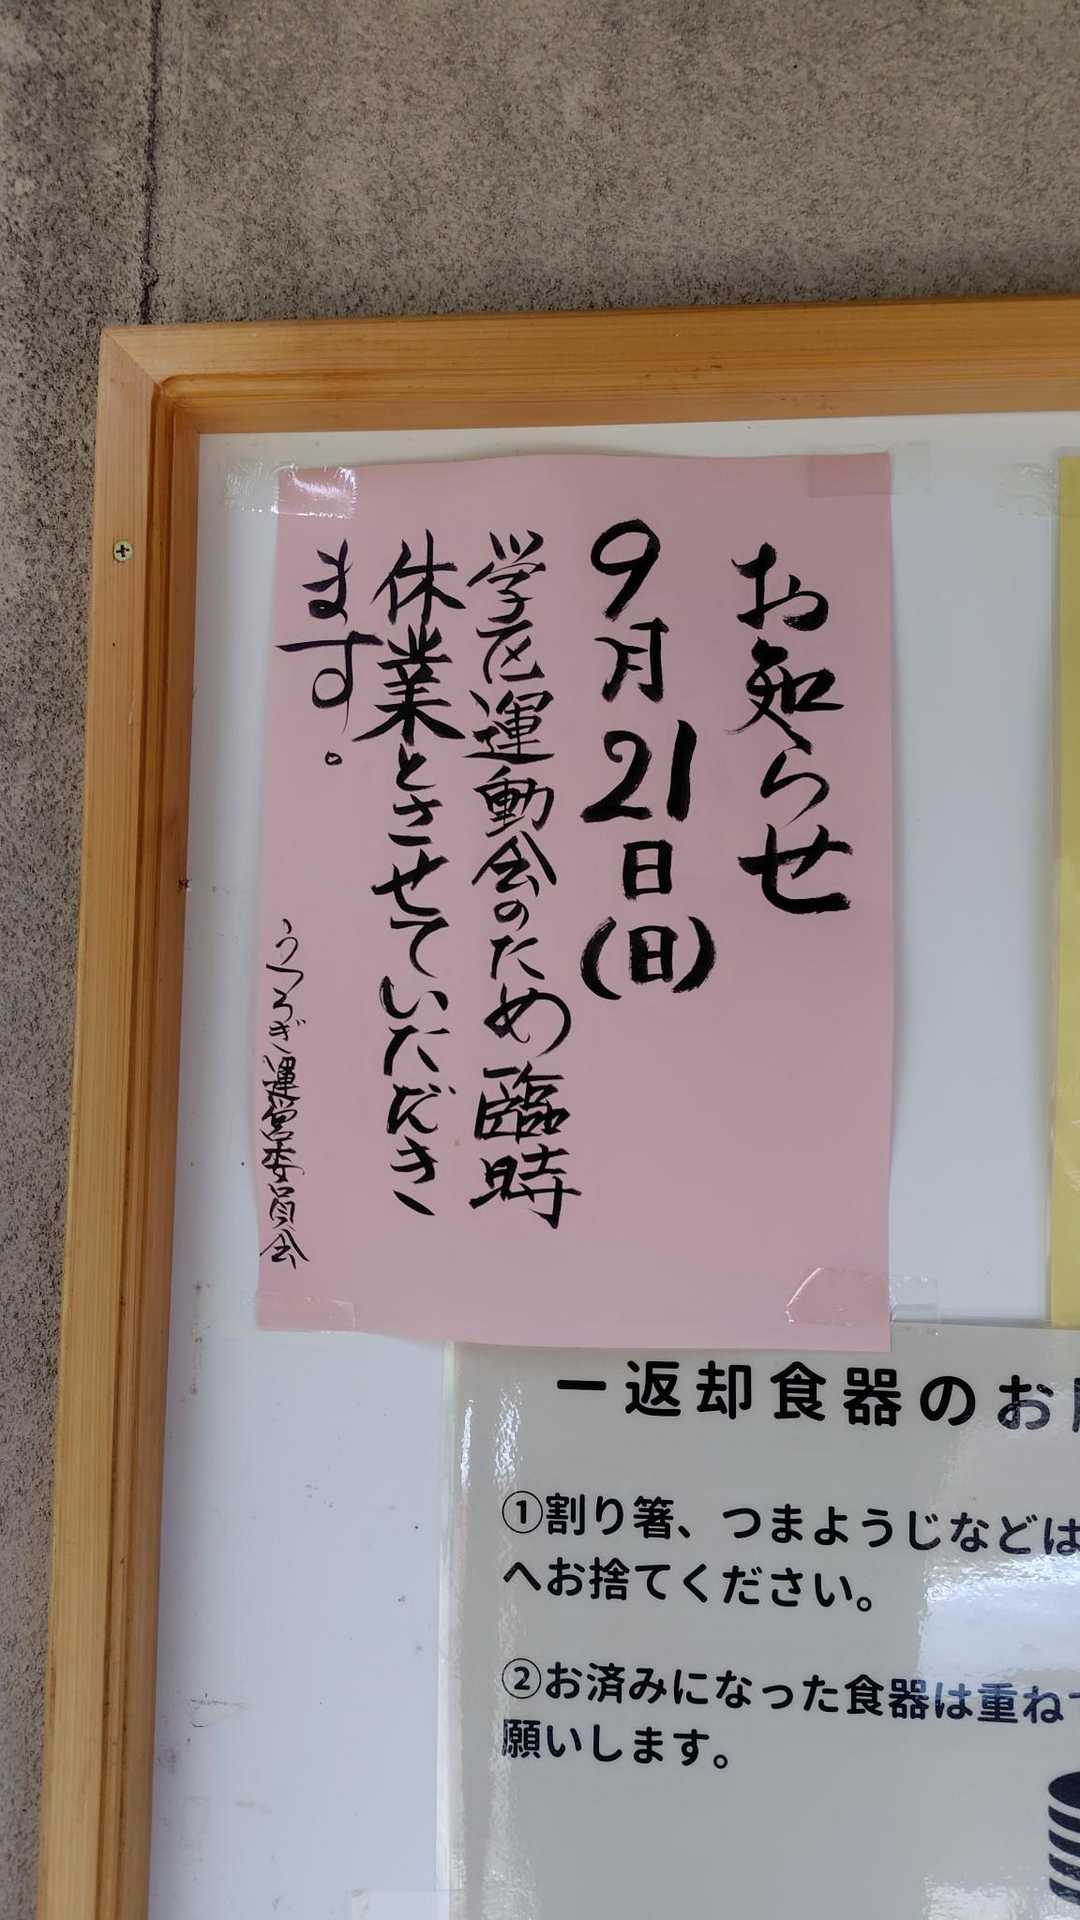 お知らせ
9月21日(日)
学区運動会のため臨時
休業とさせていただき
ます。
うつろぎ運営委員会
ー返却食器のお
①割り箸、つまようじなどは
へお捨てください。
②お済みになった食器は重ねて
願いします。